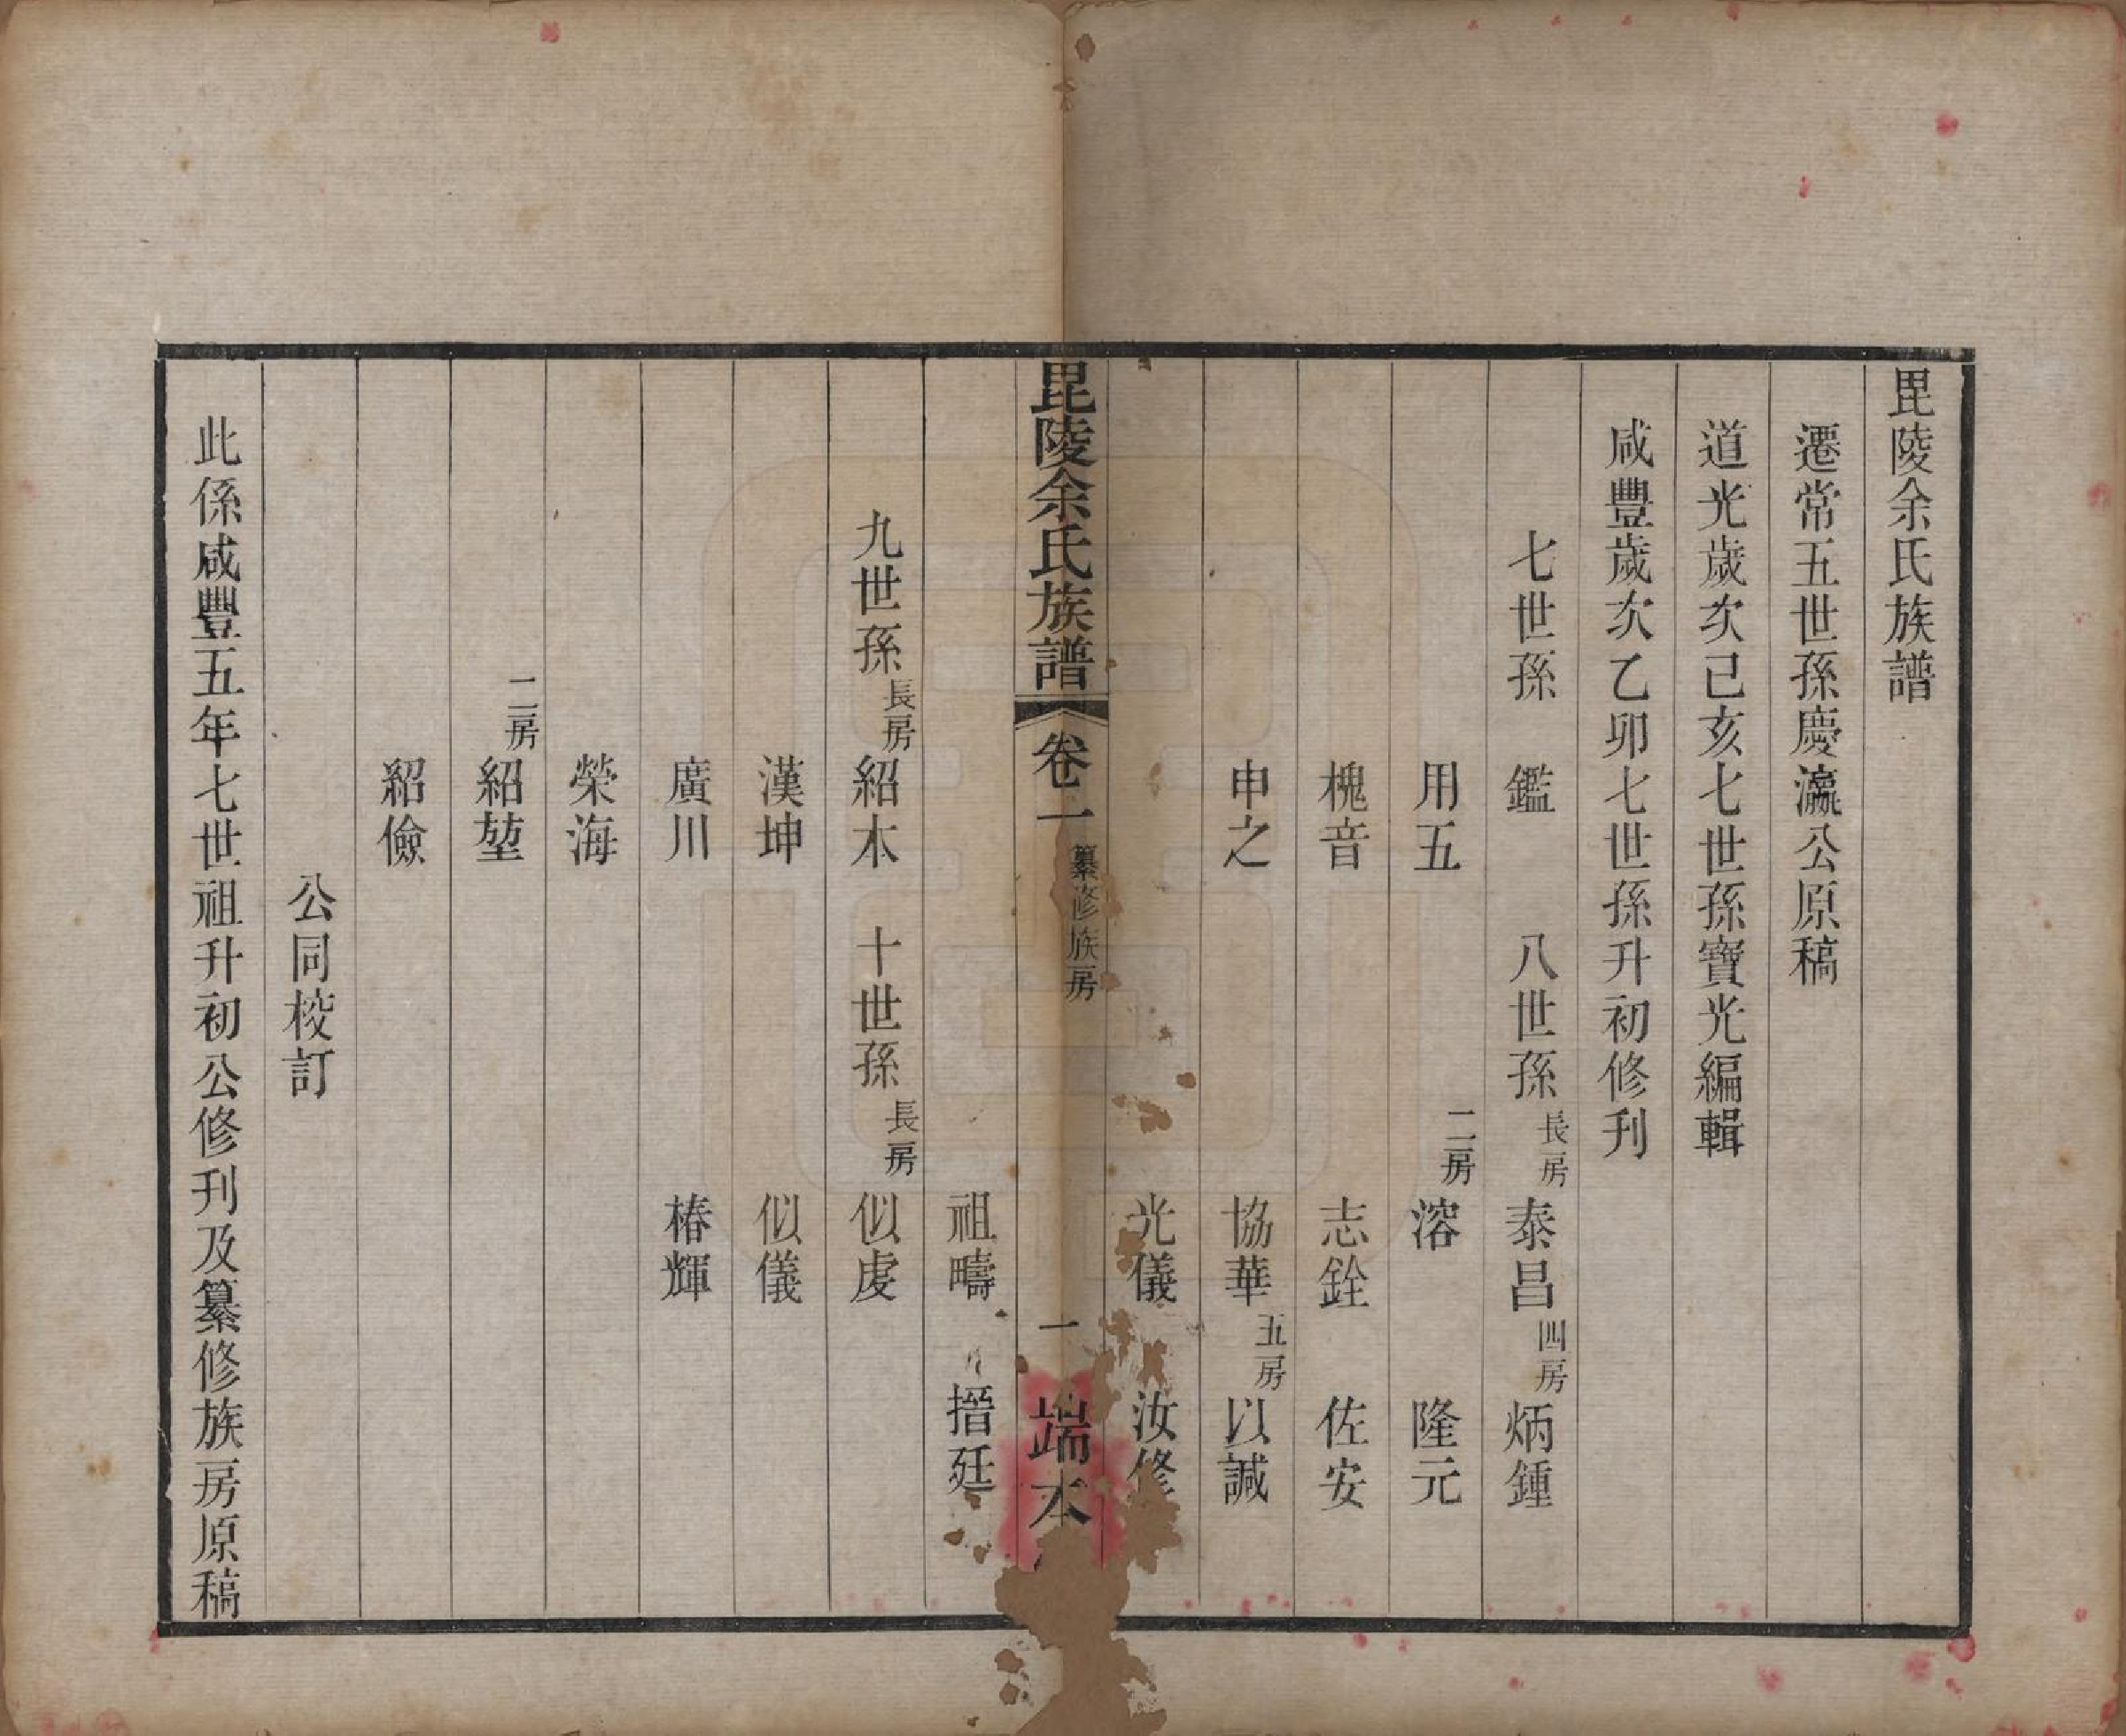 毘陵余氏族譜
遷常五世孫慶瀛公原稿
道光歲次己亥七世孫寶光編輯
咸豐歲次乙卯七世孫升初修刊
七世孫 鑑 八世孫 長房 泰昌 四房 炳鍾
用五 二房 溶 隆元
槐音 志銓 佐安
申之 協華 五房 以諴
光儀 汝修
毘陵余氏族譜 卷一 纂修族房 一 端本
祖疇 搢廷
九世孫 長房 紹木 十世孫 長房 似虔
漢坤 似儀
廣川 椿輝
榮海
二房 紹堃
紹儉
公同校訂
此係咸豐五年七世祖升初公修刊及纂修族房原稿